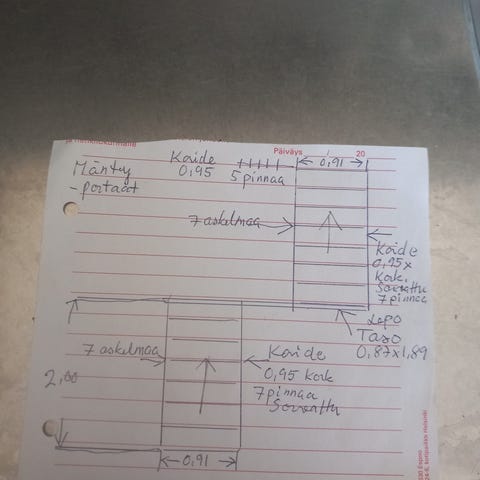 Päiväys 20
Mänty
-portaat
Kaide
0,95
5 pinnaa
0,91
7 askelmaa
Kaide
0,95 x
Kork.
Sorvattu
7 pinnaa
Lepo
Taso
0,87x1,89
7 askelmaa
Kaide
0,95 Kork
7 pinnaa
Sorvattu
2,00
0,91